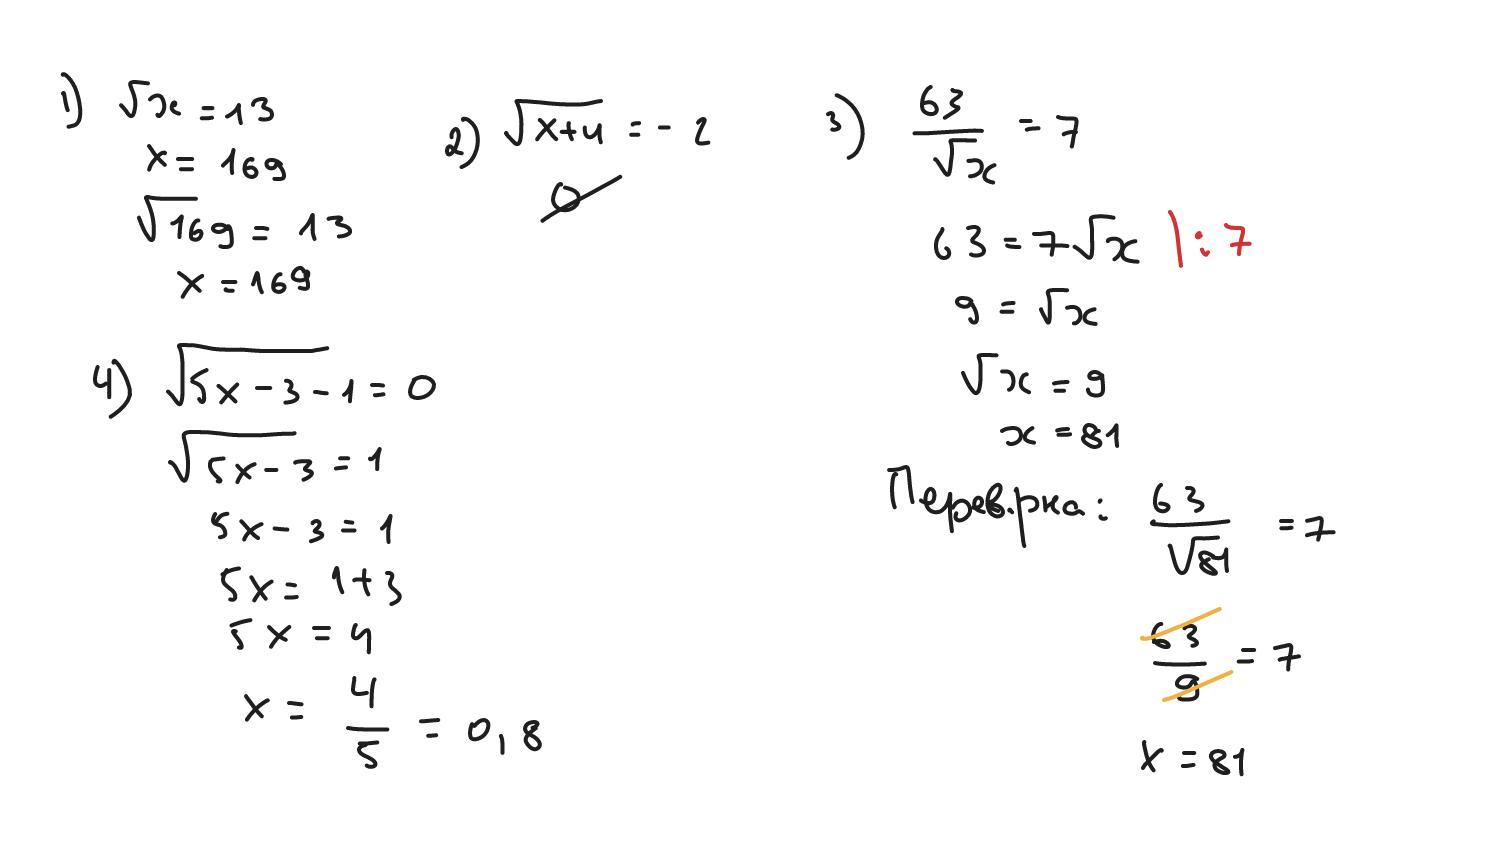 1) √x = 13
x = 169
√169 = 13
x = 169
2) √x+4 = - 2
∅
3) 63/√x = 7
63 = 7√x |: 7
9 = √x
√x = 9
x = 81
Перев.рка: 63/√81 = 7
63/9 = 7
x = 81
4) √5x - 3 - 1 = 0
√5x - 3 = 1
5x - 3 = 1
5x = 1+3
5x = 4
x = 4/5 = 0,8